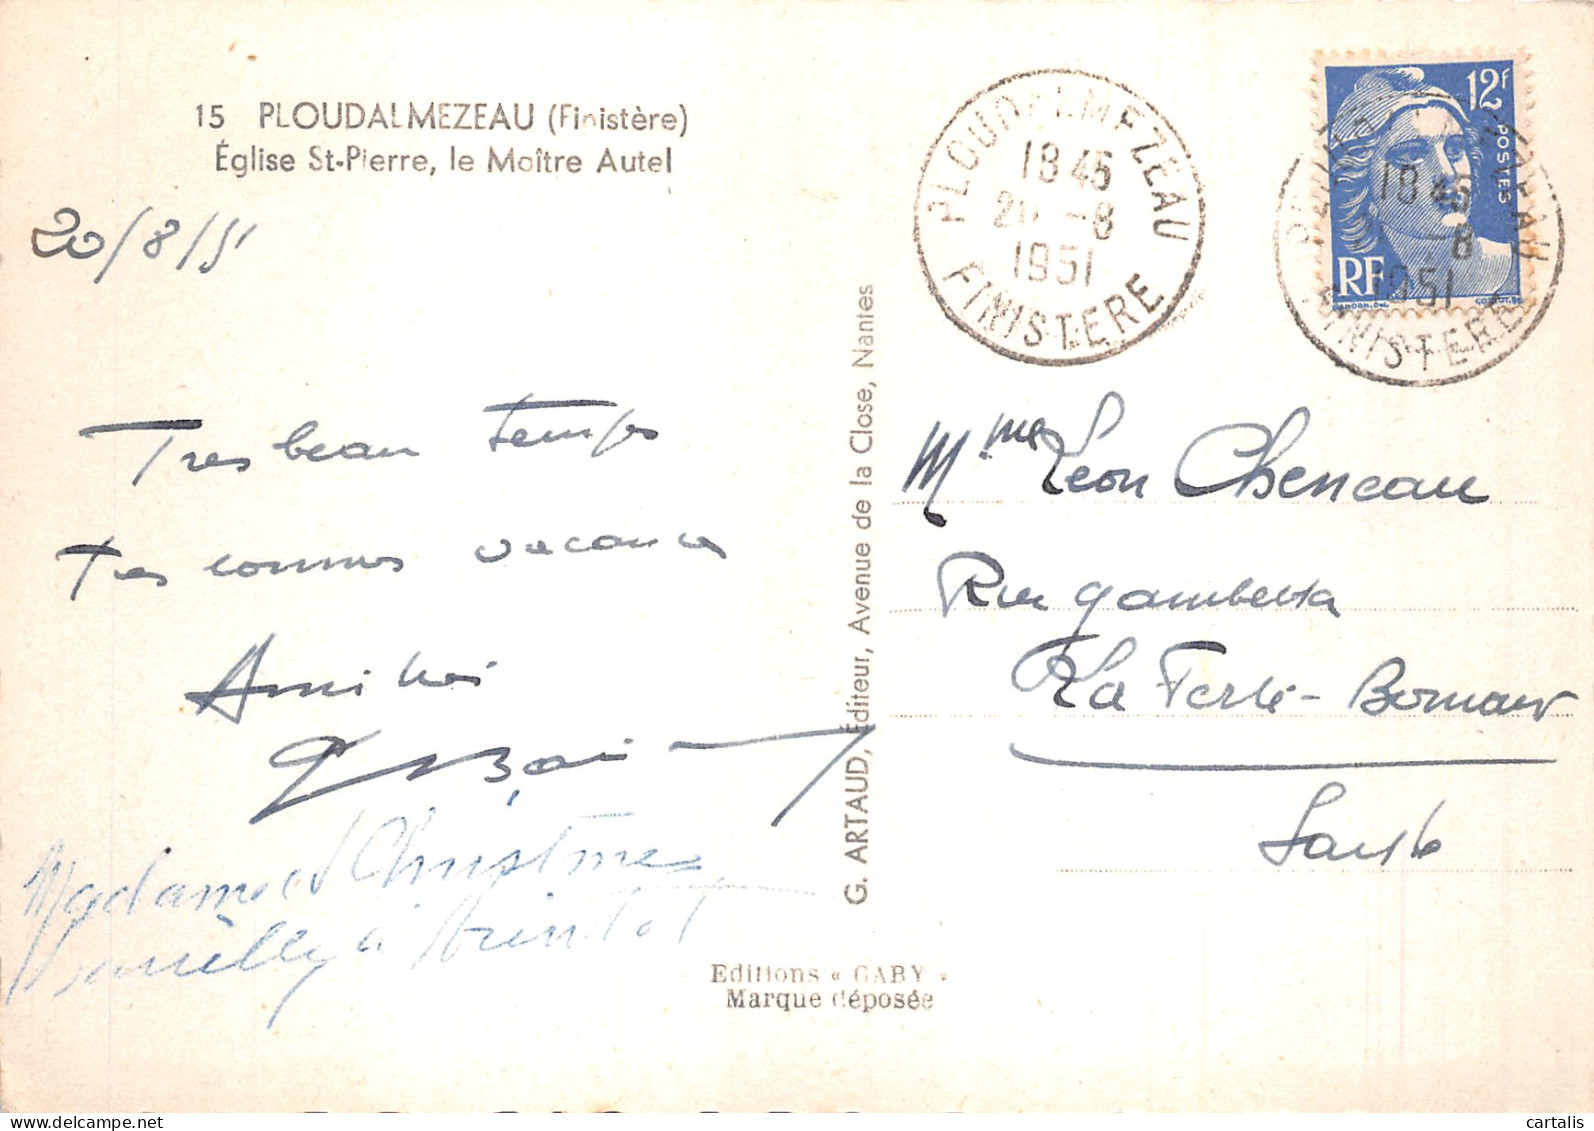 15 PLOUDALMEZEAU (Finistère)
Église St-Pierre, le Maître Autel
20/8/51
Tres beau temps
Tres bonnes vacances
Amitiés
PLOUDALMEZEAU
18 45
20 -8
1951
FINISTERE
12f
POSTES
RF
PLOUDALMEZEAU
18 45
-8
1951
FINISTERE
Mme Léon Cheneau
Rue Gambetta
La Ferté-Bernard
Sarthe
G. ARTAUD, Éditeur, Avenue de la Close, Nantes
Madame Christmes
à
Editions « GABY »
Marque déposée
cartalis